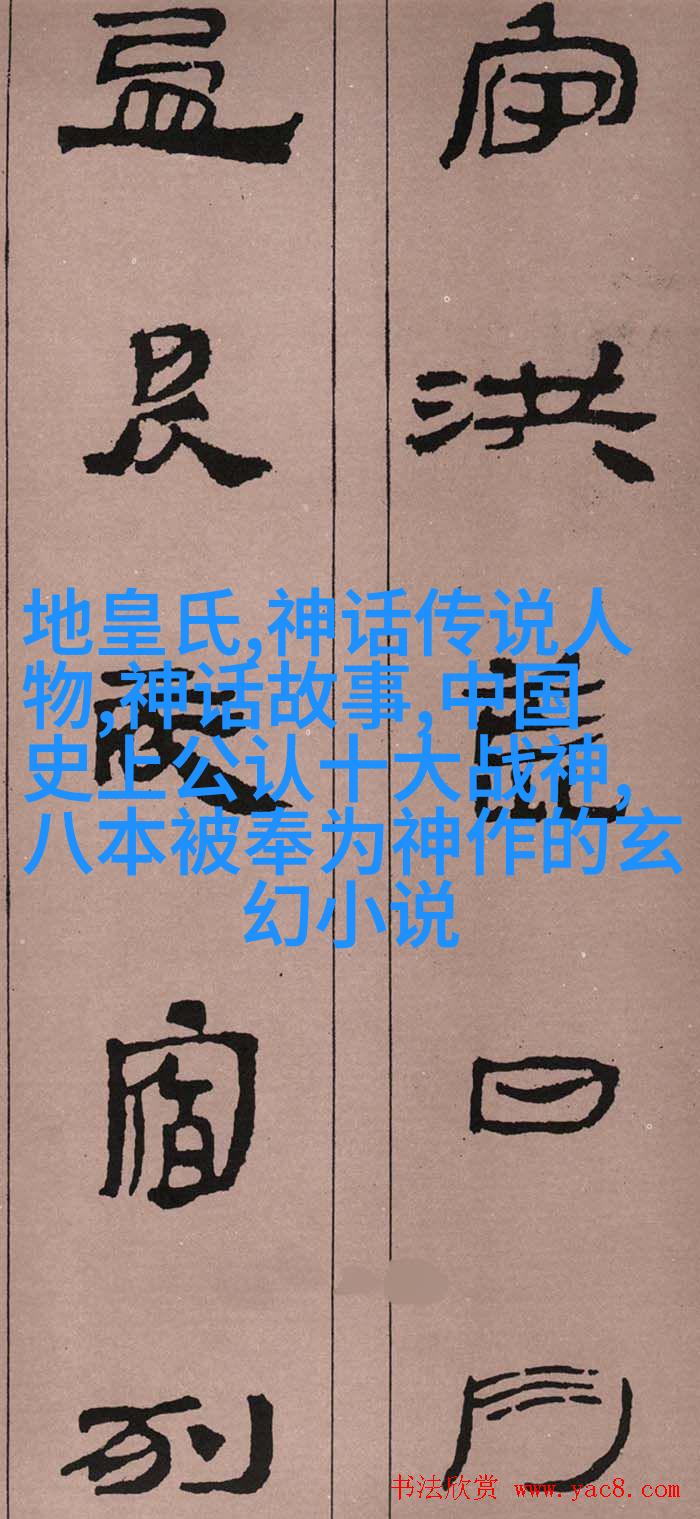 宇洪荒日月
盈昃辰宿列
地皇氏,神话传说人
物,神话故事,中国
史上公认十大战神,
八本被奉为神作的玄
幻小说
书法欣赏 www.yac8.com